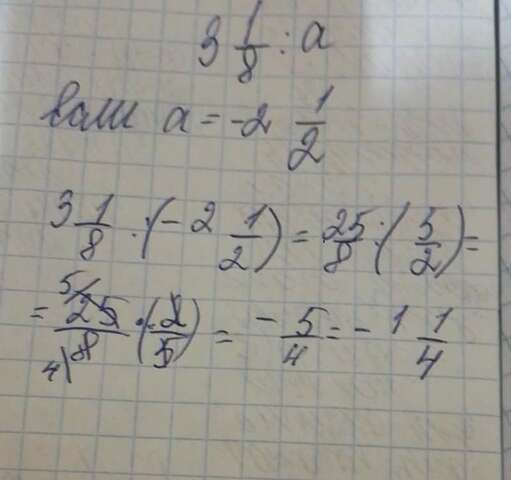 3 1/8 : a
если a = -2 1/2
3 1/8 : (-2 1/2) = 25/8 : (5/2) =
= 25/8 · (-2/5) = -5/4 = -1 1/4
5 4